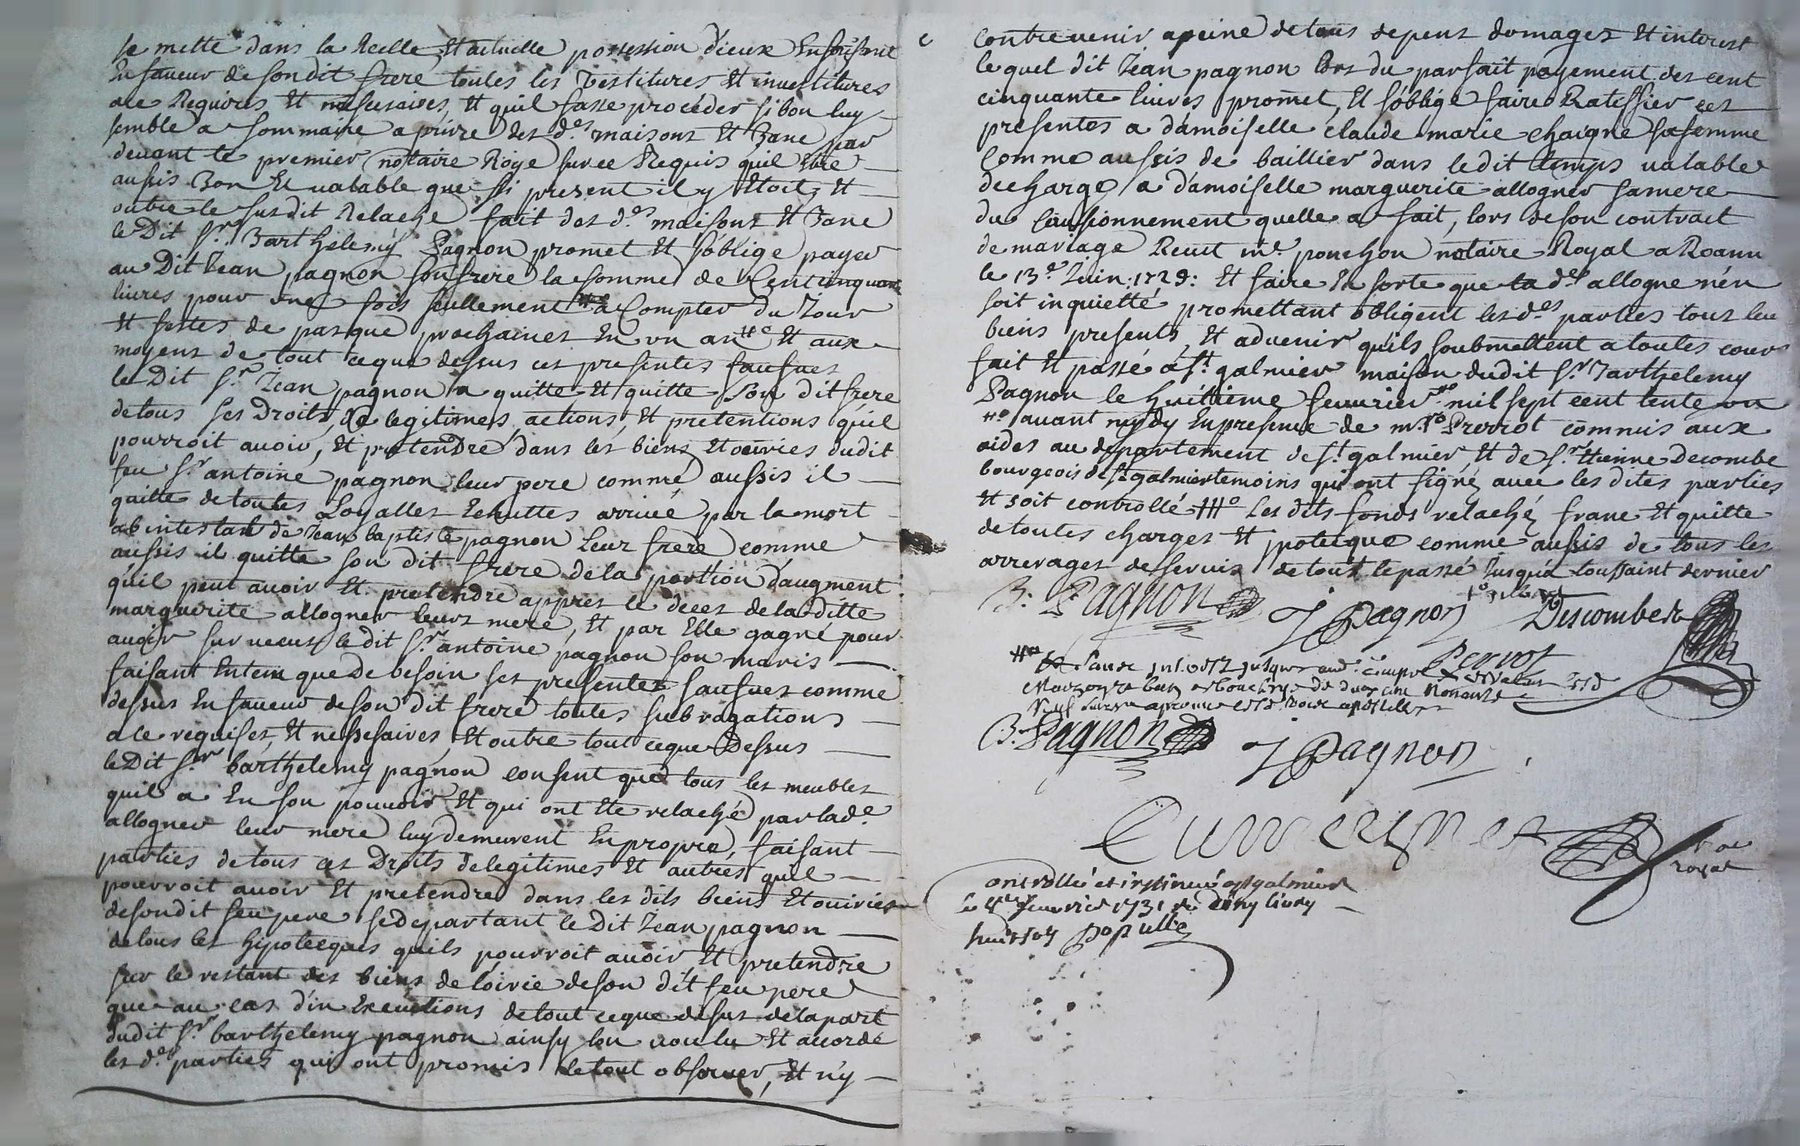 se mette dans la Reelle Et actuelle possession d'ieux En faisant
En faveur de son dit frere toutes les Vestitures Et investitures
a ce Requires Et nessesaires, Et quil fasse proceder si bon luy
semble a sommaire a prire des d.es maisons Et Bane par
devant le premier notaire Roye sur ce Requis quil Ette
aussis Bon Et valable que si present il y Etoit, Et
outre le susdit Relache fait des d.es maisons Et Bane
le Dit Sr. Barthelemy Pagnon promet Et s'oblige payer
au Dit Jean pagnon son frere la somme de Cent cinquante
livres pour une fois seullement a Compter du Jour
Et festes de pasque prochaines En un an Et aux
moyens de tout ceque dessus ces presentes saufues
le Dit Sr. Jean pagnon a quitte Et quitte Son dit frere
de tous ses Droits, de legitimes, actions, Et pretentions qu'il
pourroit avoir, Et pretendre dans les biens Et oeuries dudit
feu Sr antoine pagnon leur pere comme aussis il
quitte de toutes Loyalles Echuttes arrivée par la mort
ab intestats de Jean baptiste pagnon leur frere comme
aussis il quitte son dit frere de la portion d'augment
qu'il peut avoir Et pretendre apprés le deces de la ditte
marguerite allogner leurs mere, Et par Elle gagné pour
avoir surveceu le dit Sr. antoine pagnon son maris
faisant Entem que de besoin ses presentes saufues comme
dessus En faveur de son dit frere toutes subrogations
a ce requises, Et nessesaires, Et outre tout ceque Dessus
le Dit Sr barthelemy pagnon consent que tous les meubles
quil a En son pouvoir Et qui ont Ete relaché par lad.e
allogner leur mere luy demeurent En propre, faisant
parties de tous ces Droits de legitimes Et autres quil
pourroit avoir Et pretendre dans les dits biens Et ouiries
de son dit feu pere se departant le Dit Jean pagnon
de tous les hipotecques quils pourroit avoir Et pretendre
sur le restant des biens de l'oirie de son dit feu pere
que au cas d'in Execultions de tout ceque desus de la part
dudit Sr barthelemy pagnon ainsy l'on voulu Et accordé
les d.es parties qui ont promis le tout observer, Et n'y
contrevenir a peine de tous depens domages Et interest
le quel dit Jean pagnon lors du parfait payement des cent
cinquante livres promet, Et s'oblige faire Ratiffier ces
presentes a damoiselle claude marie chaigne sa femme
Comme aussis de baillier dans le dit temps valable
decharge a damoiselle marguerite allogner sa mere
du Caussionnement quelle a fait, lors de son contract
de mariage Receut m.e ponchon notaire Royal a Roanne
le 13.e Juin 1729: Et faire En sorte que la d.e allogne n'en
soit inquietté promettant obligent les d.es parties tous leu
biens presents, Et advenir qu'ils soubmettent a toutes cours
fait Et passé a St. galmier maison dudit Sr. Barthelemy
Pagnon le huittieme fevurier mil sept cent trente un
avant midy En presence de m. Perrot commis aux
aides au departement de St. galmier, Et de Sr. Etienne Decombe
bourgeois de St galmier temoins qui ont signé avec les dites parties
Et soit controllé Les dits fonds relaché franc Et quitte
de toutes charges Et ipotecque comme aussis de tous les
arrerages de servis de tout le passé jusqu'a toussaint dernier
B. Pagnon J Pagnon Descombes
Perrot
B. Pagnon J Pagnon
royal
ontrollé et insinué a st galmier
le fevrier 1731 Re cinq livres
huit sols